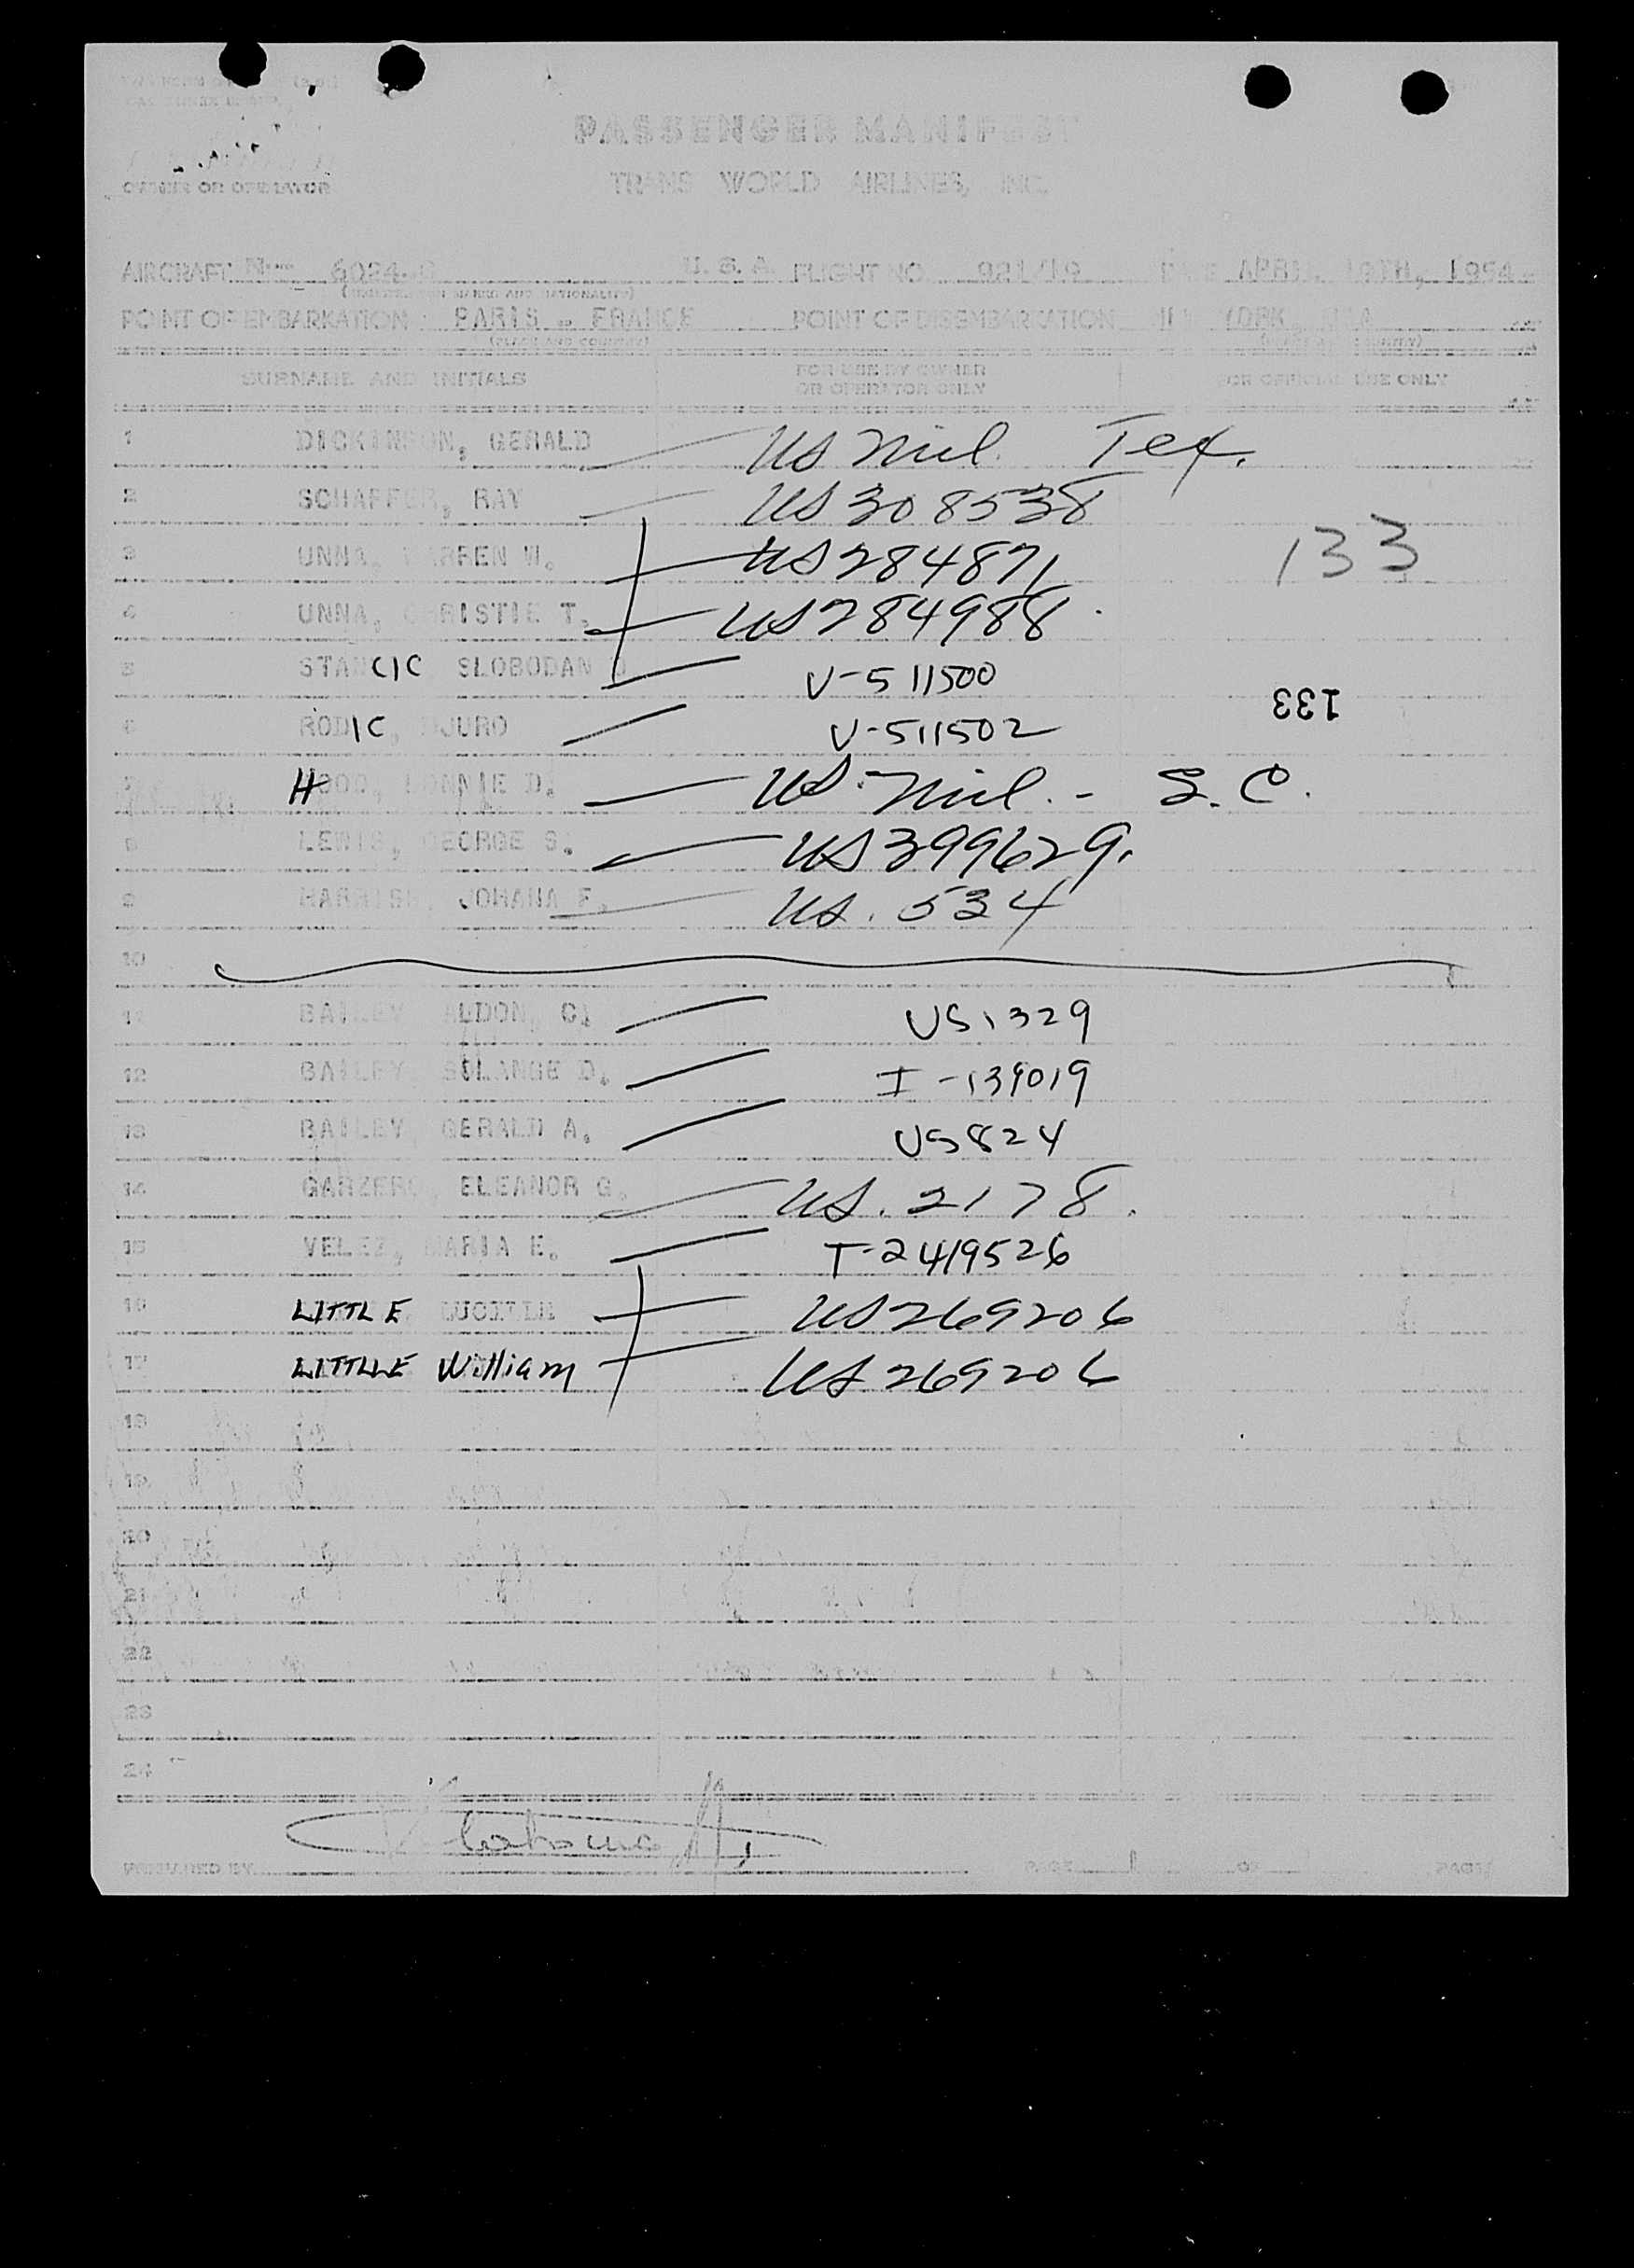 OWNER OR OPERATOR
PASSENGER MANIFEST
TRANS WORLD AIRLINES, INC.
AIRCRAFT N- 6024 C U. S. A. FLIGHT NO. 921/19 DATE APRIL 19TH, 1954
(REGISTRATION MARKS AND NATIONALITY)
POINT OF EMBARKATION PARIS - FRANCE POINT OF DISEMBARKATION NEW YORK, USA
(PLACE AND COUNTRY) (PLACE AND COUNTRY)
SURNAME AND INITIALS FOR USE BY OWNER OR OPERATOR ONLY FOR OFFICIAL USE ONLY
1 DICKINSON, GERALD US Mil. Tex.
2 SCHAFFER, RAY US 308538
3 UNNA, WARREN W. US 284871 133
4 UNNA, CHRISTIE T. US 284988
5 STANCIC SLOBODAN V-511500 133
6 RODIC, DJURO V-511502
7 HOOD, LONNIE D. US. Mil. - S.C.
8 LEWIS, GEORGE S. US 399629.
9 JOHANA F. US. 534
10
11 BAILEY ALDON, C. US1329
12 BAILEY, SOLANGE D. I-139019
13 BAILEY, GERALD A. US824
14 ELEANOR G. US. 2178.
15 VELEZ, MARIA E. T-2419526
16 LITTLE US 269206
17 LITTLLE William US 269206
18
19
20
21
22
23
24
PREPARED BY PAGE 1 OF PAGES